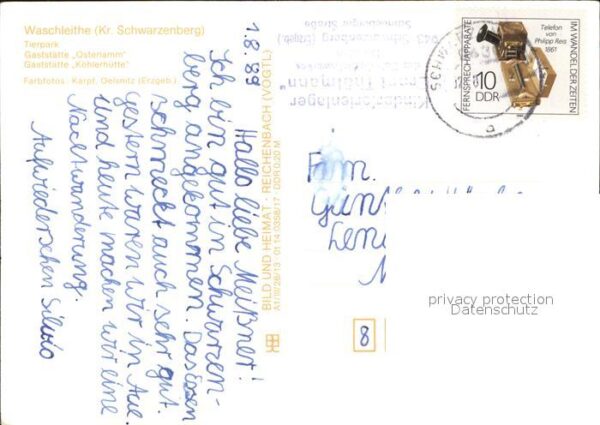 Waschleithe (Kr. Schwarzenberg)
Tierpark
Gaststätte „Osterlamm“
Gaststätte „Köhlerhütte“
Farbfotos: Karpf, Oelsnitz (Erzgeb.)
1.8.89
Hallo liebe Meißner!
Ich bin gut in Schwarzen-
berg angekommen. Das Essen
schmeckt auch sehr gut.
Gestern waren wir in Aue
Und heute machen wir eine
Nachtwanderung.
Aufwiedersehen Silvio
BILD UND HEIMAT · REICHENBACH (VOGTL)
A1/III/26/13 01 14 0358/17 DDR 0,20 M
Kinderferienlager
"Ernst Thälmann"
Schwarzenberg (Erzgeb.)
Schneeberger Straße
Telefon
von
Philipp Reis
1861
FERNSPRECHAPPARATE
IM WANDEL DER ZEITEN
10
DDR
a
Fam.
8
privacy protection
Datenschutz